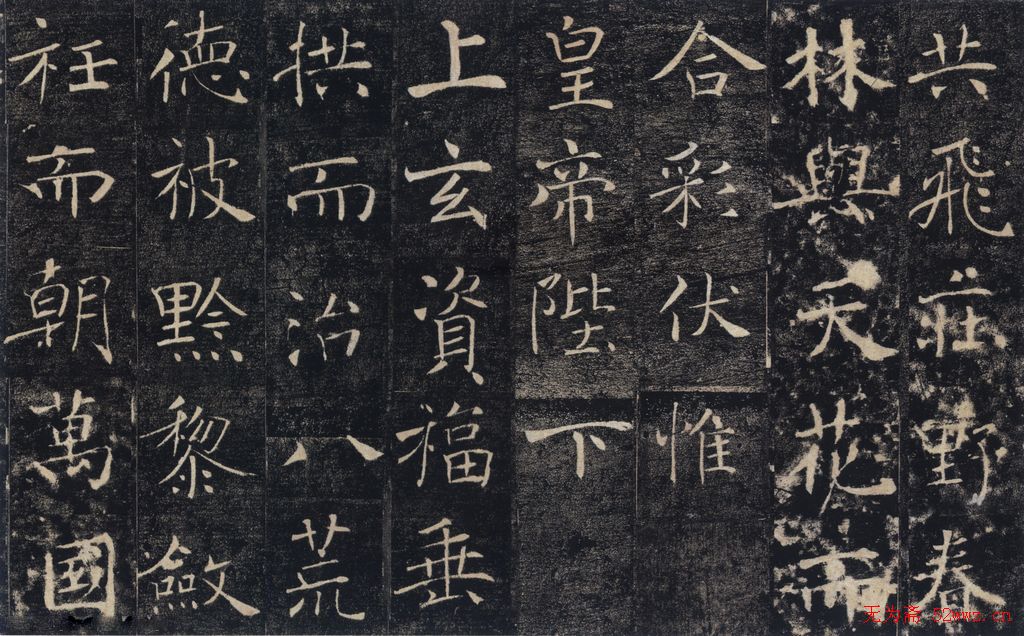 共飛莊野春
林與天花而
合彩伏惟
皇帝陛下
上玄資福垂
拱而治八荒
德被黔黎斂
衽而朝萬國
无为斋 52wwz.cn